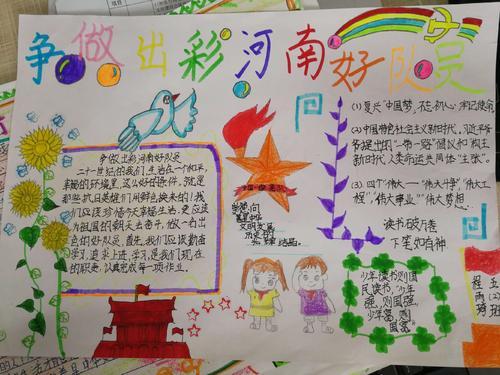 争做出彩河南好队员
争做出彩河南好队员
二十一世纪的我们生活在一个和平、
幸福的环境里,这么好的条件,就是
那些抗日英雄们用鲜血换来的!我
们应该珍惜今天幸福生活,更应该
为祖国的明天去奋斗,做一名出
色的好队员。首先,我们应该勤奋
学习,追求上进,学习是我们现在
的职责,认真完成每一项作业。
文明发展
(1)复兴“中国梦”,不忘初心,牢记使命
(2)中国特色社会主义新时代,习近平总
书记提出的“一带一路”倡议如“构主
新时代,人类命运共同体”主张。
(3)四个“伟大”—“伟大斗争”,“伟大工
程”,“伟大事业”“伟大梦想。
读书破万卷
下笔如有神
少年读书则国
民读书,少年
强,则国强,
少年富则
国富